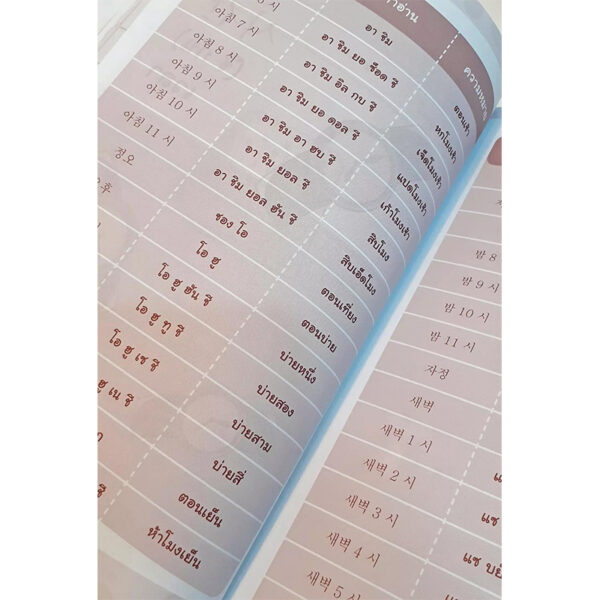 อ่าน ความหมาย
อา ชิม ตอนเช้า
6 시 อา ชิม ยอ ซ็อด ชี หกโมงเช้า
아침 7 시 อา ชิม อิล กบ ชี เจ็ดโมงเช้า
아침 8 시 อา ชิม ยอ ดอล ชี แปดโมงเช้า
아침 9 시 อา ชิม อา ฮบ ชี เก้าโมงเช้า
아침 10 시 อา ชิม ยอล ชี สิบโมง
아침 11 시 อา ชิม ยอล ฮัน ชี สิบเอ็ดโมง
정오 ชอง โอ ตอนเที่ยง
오후 โอ ฮู ตอนบ่าย
โอ ฮู ฮัน ชี บ่ายหนึ่ง
โอ ฮู ทู ชี บ่ายสอง
โอ ฮู เซ ชี บ่ายสาม
ฮู เน ชี บ่ายสี่
ตอนเย็น
ชี ห้าโมงเย็น
밤 8
밤 9 시
밤 10 시
밤 11 시
자정
새벽
새벽 1 시
새벽 2 시
새벽 3 시 แซ
새벽 4 시 แซ
새벽 5 시